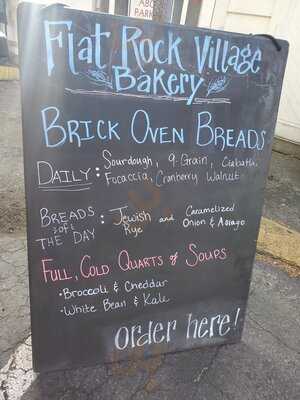 Flat Rock Village
Bakery
BRICK OVEN BREADS
DAILY: Sourdough, 9-Grain, Ciabatta,
Focaccia, Cranberry Walnut
BREADS OF THE DAY: Jewish Rye and Caramelized Onion & Asiago
FULL, COLD QUARTS of SOUPS
· Broccoli & Cheddar
· White Bean & Kale
Order here!